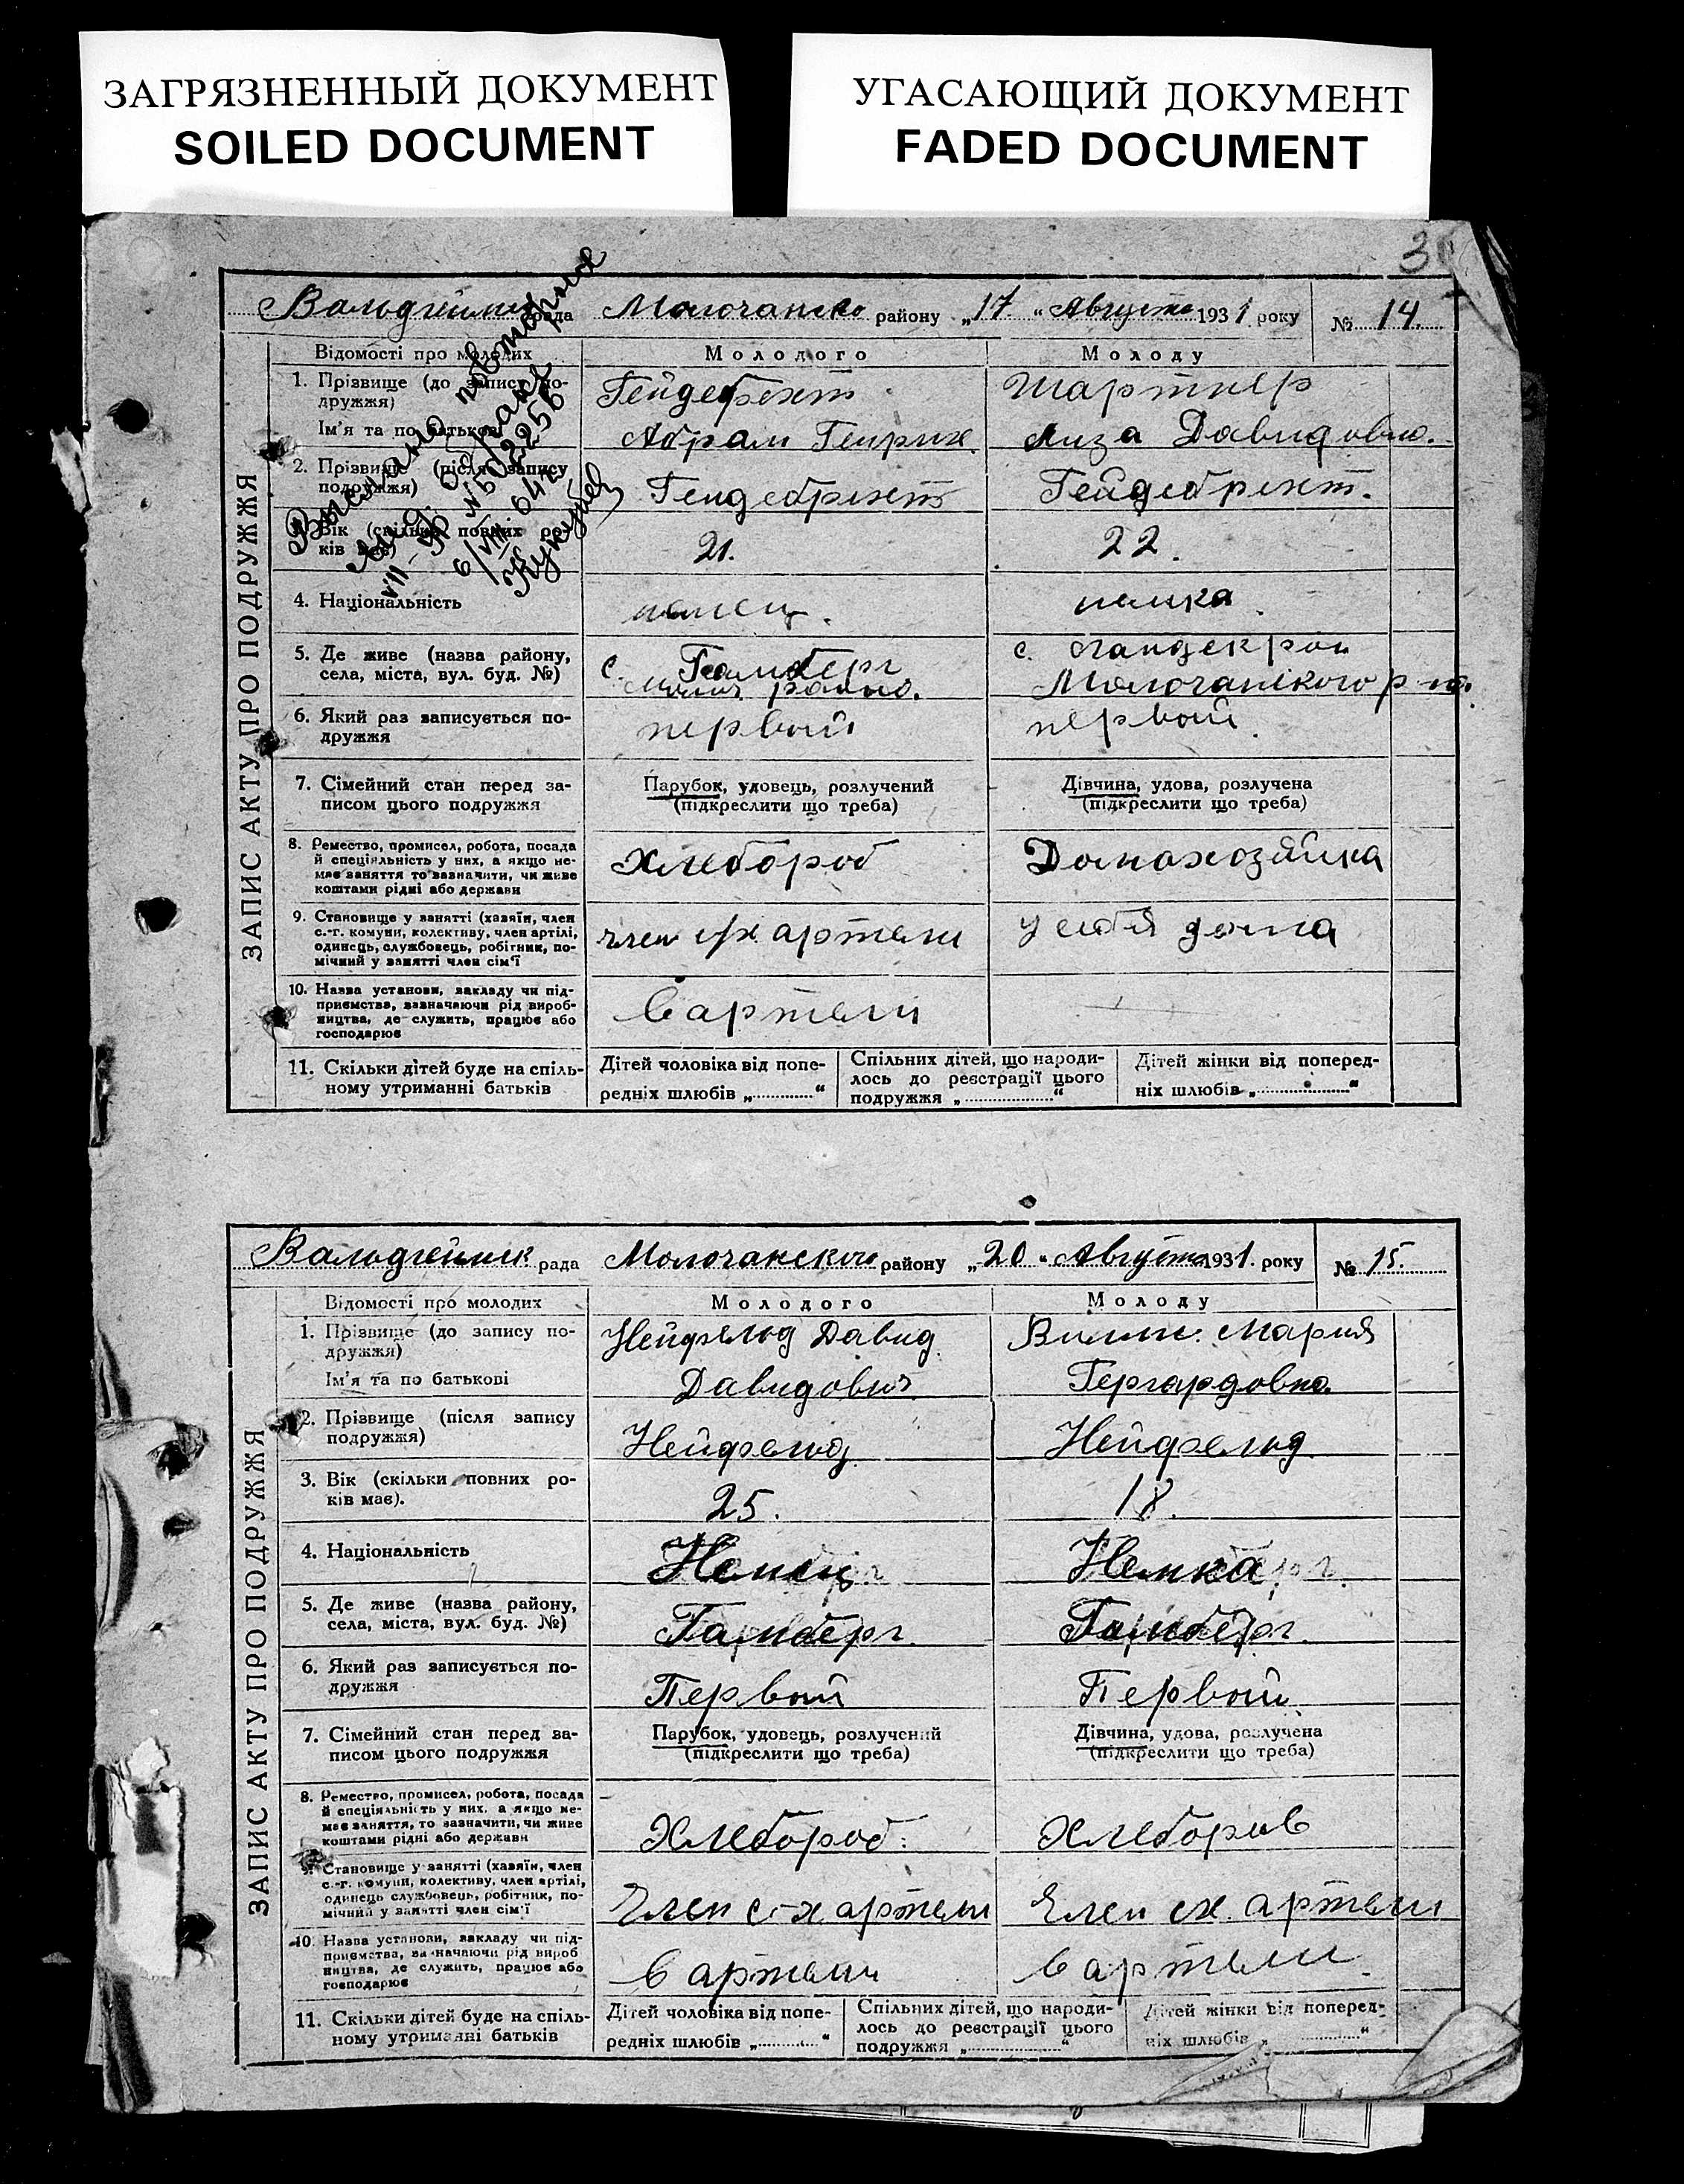 ЗАГРЯЗНЕННЫЙ ДОКУМЕНТ
SOILED DOCUMENT
УГАСАЮЩИЙ ДОКУМЕНТ
FADED DOCUMENT
3
ЗАПИС АКТУ ПРО ПОДРУЖЖЯ
Вальдгейм рада Молочанско району „17“ Августа 1931 року № 14.
Выслано повторное
VII-
№ 502256
6/VIII 647
Відомості про молодих Молодого Молоду
1. Прізвище (до запису по-
дружжя)
Гейдебрехт Шартнер
Ім'я та по батькові Абрам Генрих Лиза Давидовна.
2. Прізвище (після запису
подружжя)
Гейдебрехт Гейдебрехт.
3. Вік (скільки повних ро-
ків має)
21. 22.
4. Національність немец. немка.
5. Де живе (назва району,
села, міста, вул. буд. №)
с. Гамберг
района.
с. Ландскрон
Молочанского р-на.
6. Який раз записується по-
дружжя
первый первый.
7. Сімейний стан перед за-
писом цього подружжя
Парубок, удовець, розлучений
(підкреслити що треба)
Дівчина, удова, розлучена
(підкреслити що треба)
8. Ремество, промисел, робота, посада
й спеціяльність у них, а якщо не-
має заняття то зазначити, чи живе
коштами рідні або держави
Хлебороб Домахозяйка
9. Становище у занятті (хазяїн, член
с.-г. комуни, колективу, член артілі,
одинець, службовець, робітник, по-
мічний у занятті член сім'ї
член с/х артели у себя дома
10. Назва установи, закладу чи під-
приємства, зазначаючи рід вироб-
ництва, де служить, працює або
господарює
в артели
11. Скільки дітей буде на спіль-
ному утриманні батьків
Дітей чоловіка від попе-
редніх шлюбів „.............“
Спільних дітей, що народи-
лось до реєстрації цього
подружжя „...................“
Дітей жінки від поперед-
ніх шлюбів „...................“
ЗАПИС АКТУ ПРО ПОДРУЖЖЯ
Вальдгеймск рада Молочанского району „20“ Августа 1931. року № 15.
Відомості про молодих Молодого Молоду
1. Прізвище (до запису по-
дружжя)
Нейфельд Давид Вилмс. Мария
Ім'я та по батькові Давидович Гергардовна.
2. Прізвище (після запису
подружжя)
Нейфельд Нейфельд.
3. Вік (скільки повних ро-
ків має).
25. 18.
4. Національність Немец Немка
5. Де живе (назва району,
села, міста, вул. буд. №)
Гамберг. Гамберг.
6. Який раз записується по-
дружжя
Первый Первый
7. Сімейний стан перед за-
писом цього подружжя
Парубок, удовець, розлучений
(підкреслити що треба)
Дівчина, удова, розлучена
(підкреслити що треба)
8. Ремество, промисел, робота, посада
й спеціяльність у них, а якщо не-
має заняття, то зазначити, чи живе
коштами рідні або держави
Хлебороб. Хлебороб
9. Становище у занятті (хазяїн, член
с.-г. комуни, колективу, член артілі,
одинець службовець, робітник, по-
мічний у занятті член сім'ї
Член с-х артели Член сх. артели
10. Назва установи, закладу чи під-
приємства, зазначаючи рід вироб
ництва, де служить, працює або
господарює
в артели в артели.
11. Скільки дітей буде на спіль-
ному утриманні батьків
Дітей чоловіка від попе-
редніх шлюбів „.............“
Спільних дітей, що народи-
лось до реєстрації цього
подружжя „...................“
Дітей жінки від поперед-
ніх шлюбів „...................“